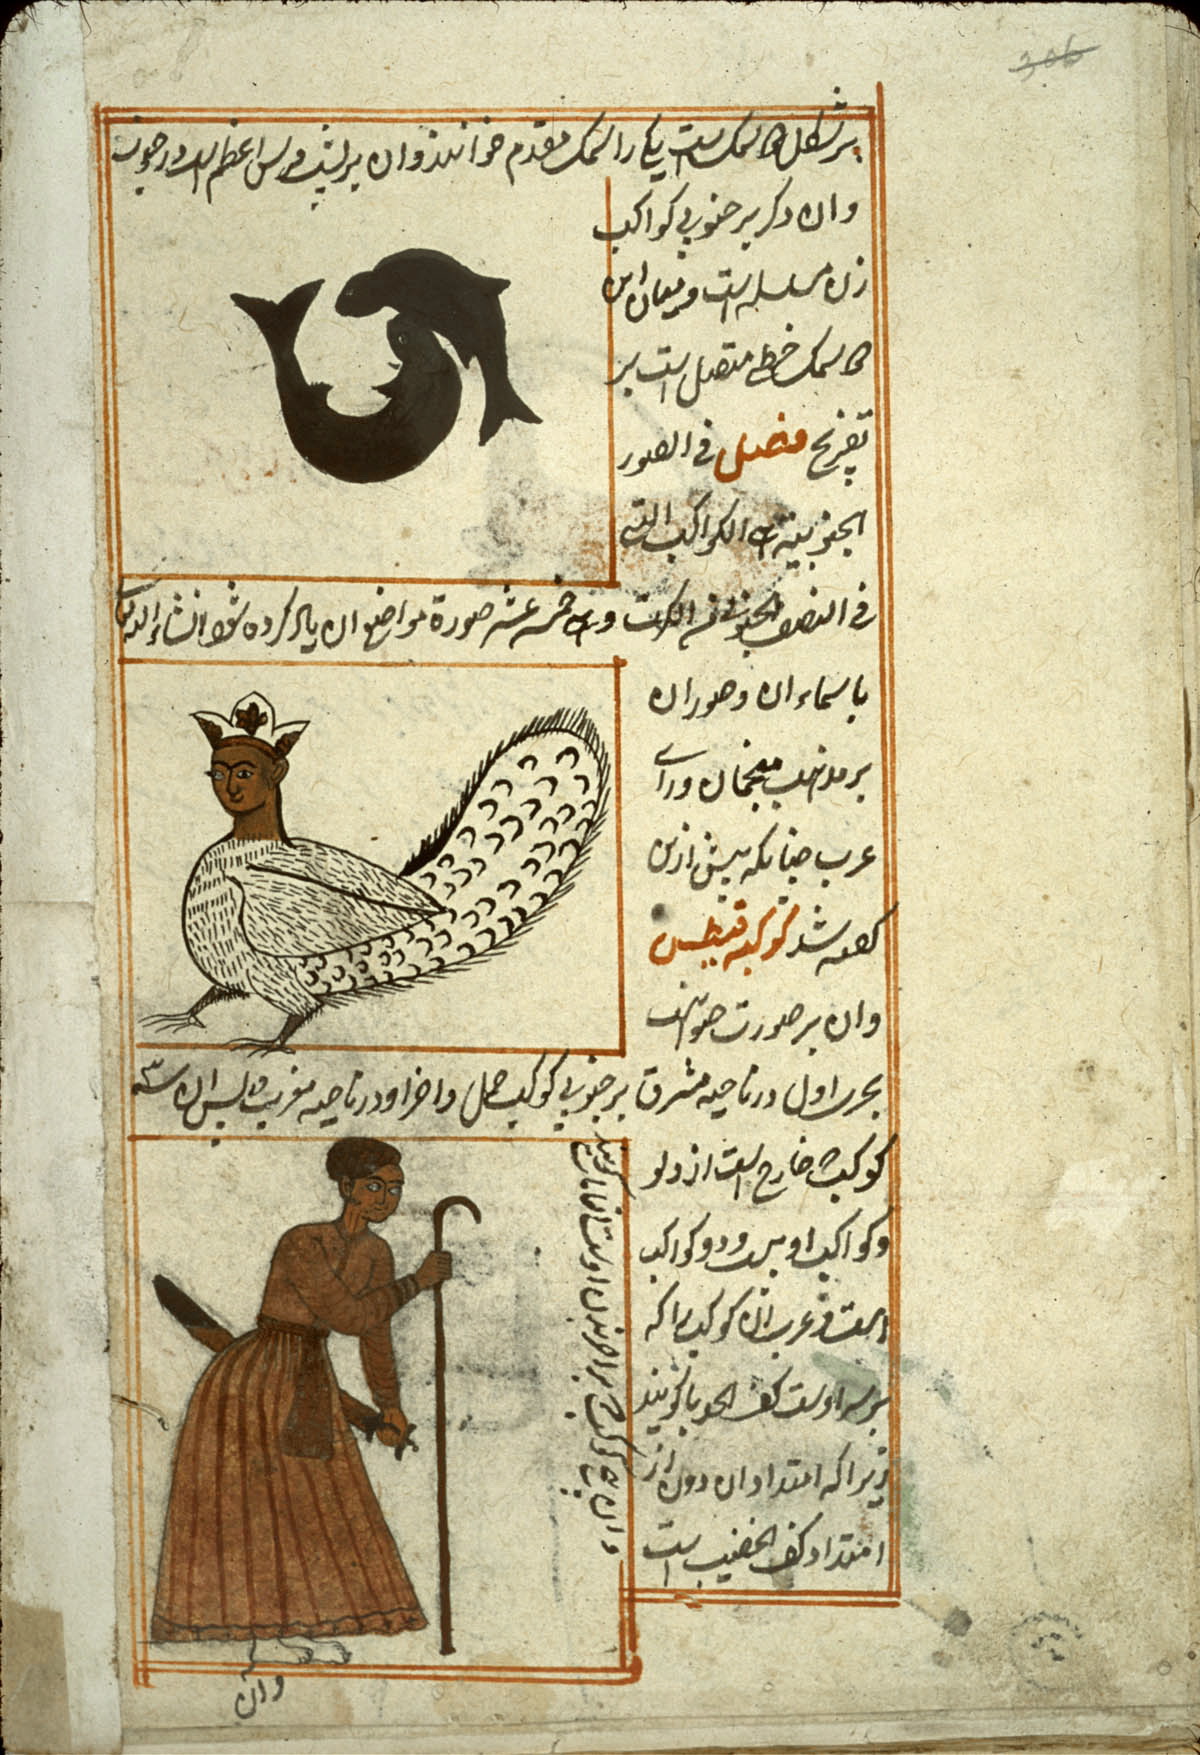 306
بر شکل دو سمک است یکی را سمک مقدم خوانند و ان بر پشت فرس اعظم است در جنوب
وان دکر بر جنوبی کواکب
زن مسلسله است و میان این
دو سمک خطی متصل است بر
تعریج فصل فی الصور
الجنوبیة ای الکواکب التی
فی النصف الجنوبی من الکرة و هی خمسة عشر صورة مواضع ان یاد کرده شود انشاء الله
باسماء ان و صور ان
بر مذهب منجمان و رای
عرب چنانکه پیش ازین
کفته شد کوکبه قیطس
وان بر صورت حیوانیست
بحری اول در ناحیه مشرق بر جنوبی کوکب حمل و اخر او در ناحیه مغرب پس ان سه
کوکب خارج است از دلو
و کواکب او بیست و دو کواکب
است و عرب ان کوکب را که
بر سر اوست کف الجذما کویند
زیرا که امتداد ان دون از
امتداد کف الخضیب است
وان